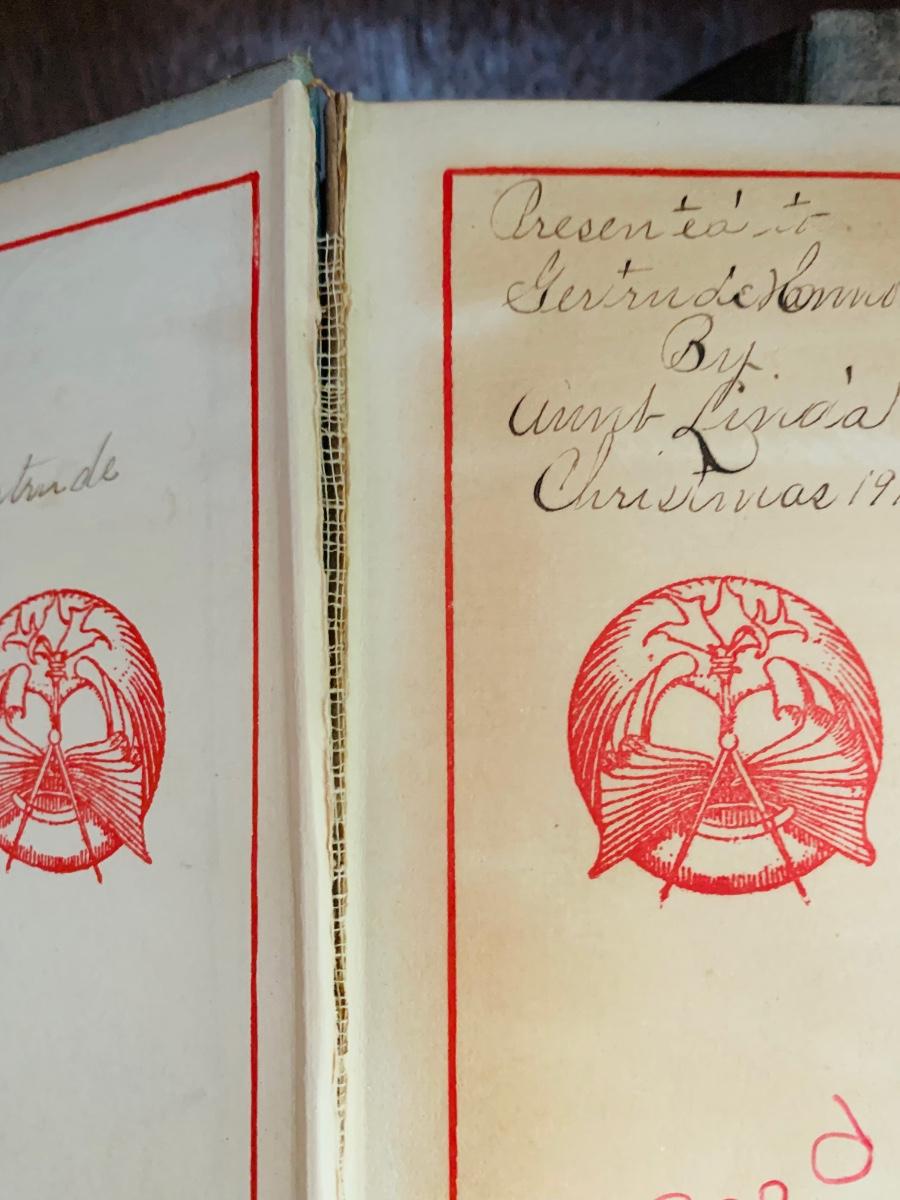 trude
Presented to
Gertrude
By
Aunt Linda
Christmas 19